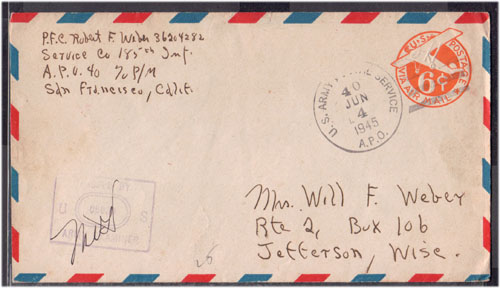 P.F.C. Robert F. Weber 36204282
Service Co 185th Inf.
A.P.O. 40 % P/M
San Francisco, Calif.
U.S. POSTAGE
6¢
VIA AIR MAIL
U.S. ARMY POSTAL SERVICE
40
JUN
4
1945
A.P.O.
Mrs. Will F. Weber
Rte 2, Box 106
Jefferson, Wisc.
BY
U S
ARMY
25